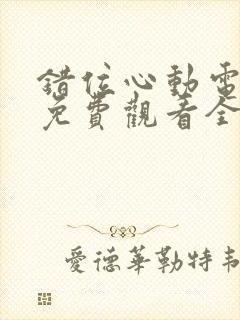 錯位心動電
免費觀看全
愛德華勒特韋